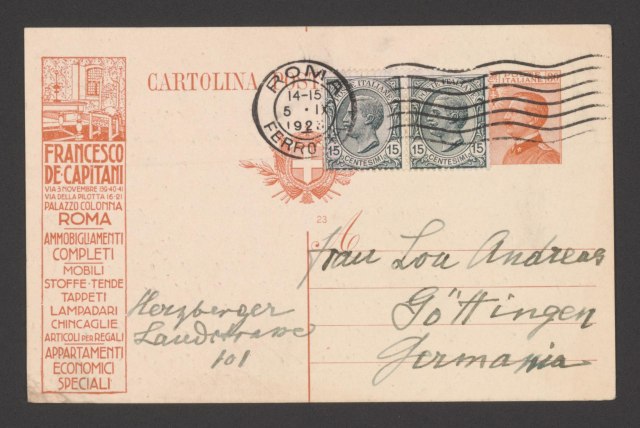 FRANCESCO
DE CAPITANI
VIA 3 NOVEMBRE 139·40·41
VIA DELLA PILOTTA 16-21
PALAZZO COLONNA
ROMA
AMMOBIGLIAMENTI
COMPLETI
MOBILI
STOFFE·TENDE
TAPPETI
LAMPADARI
CHINCAGLIE
ARTICOLI PER REGALI
APPARTAMENTI
ECONOMICI
SPECIALI
CARTOLINA POST
ROMA
14-15
5 · IX
192
FERRO
15 CENTESIMI 15
15 CENTESIMI 15
ITALIANE
23
Frau Lou Andreas
Göttingen
Germania
Herzberger
Landstrasse
101